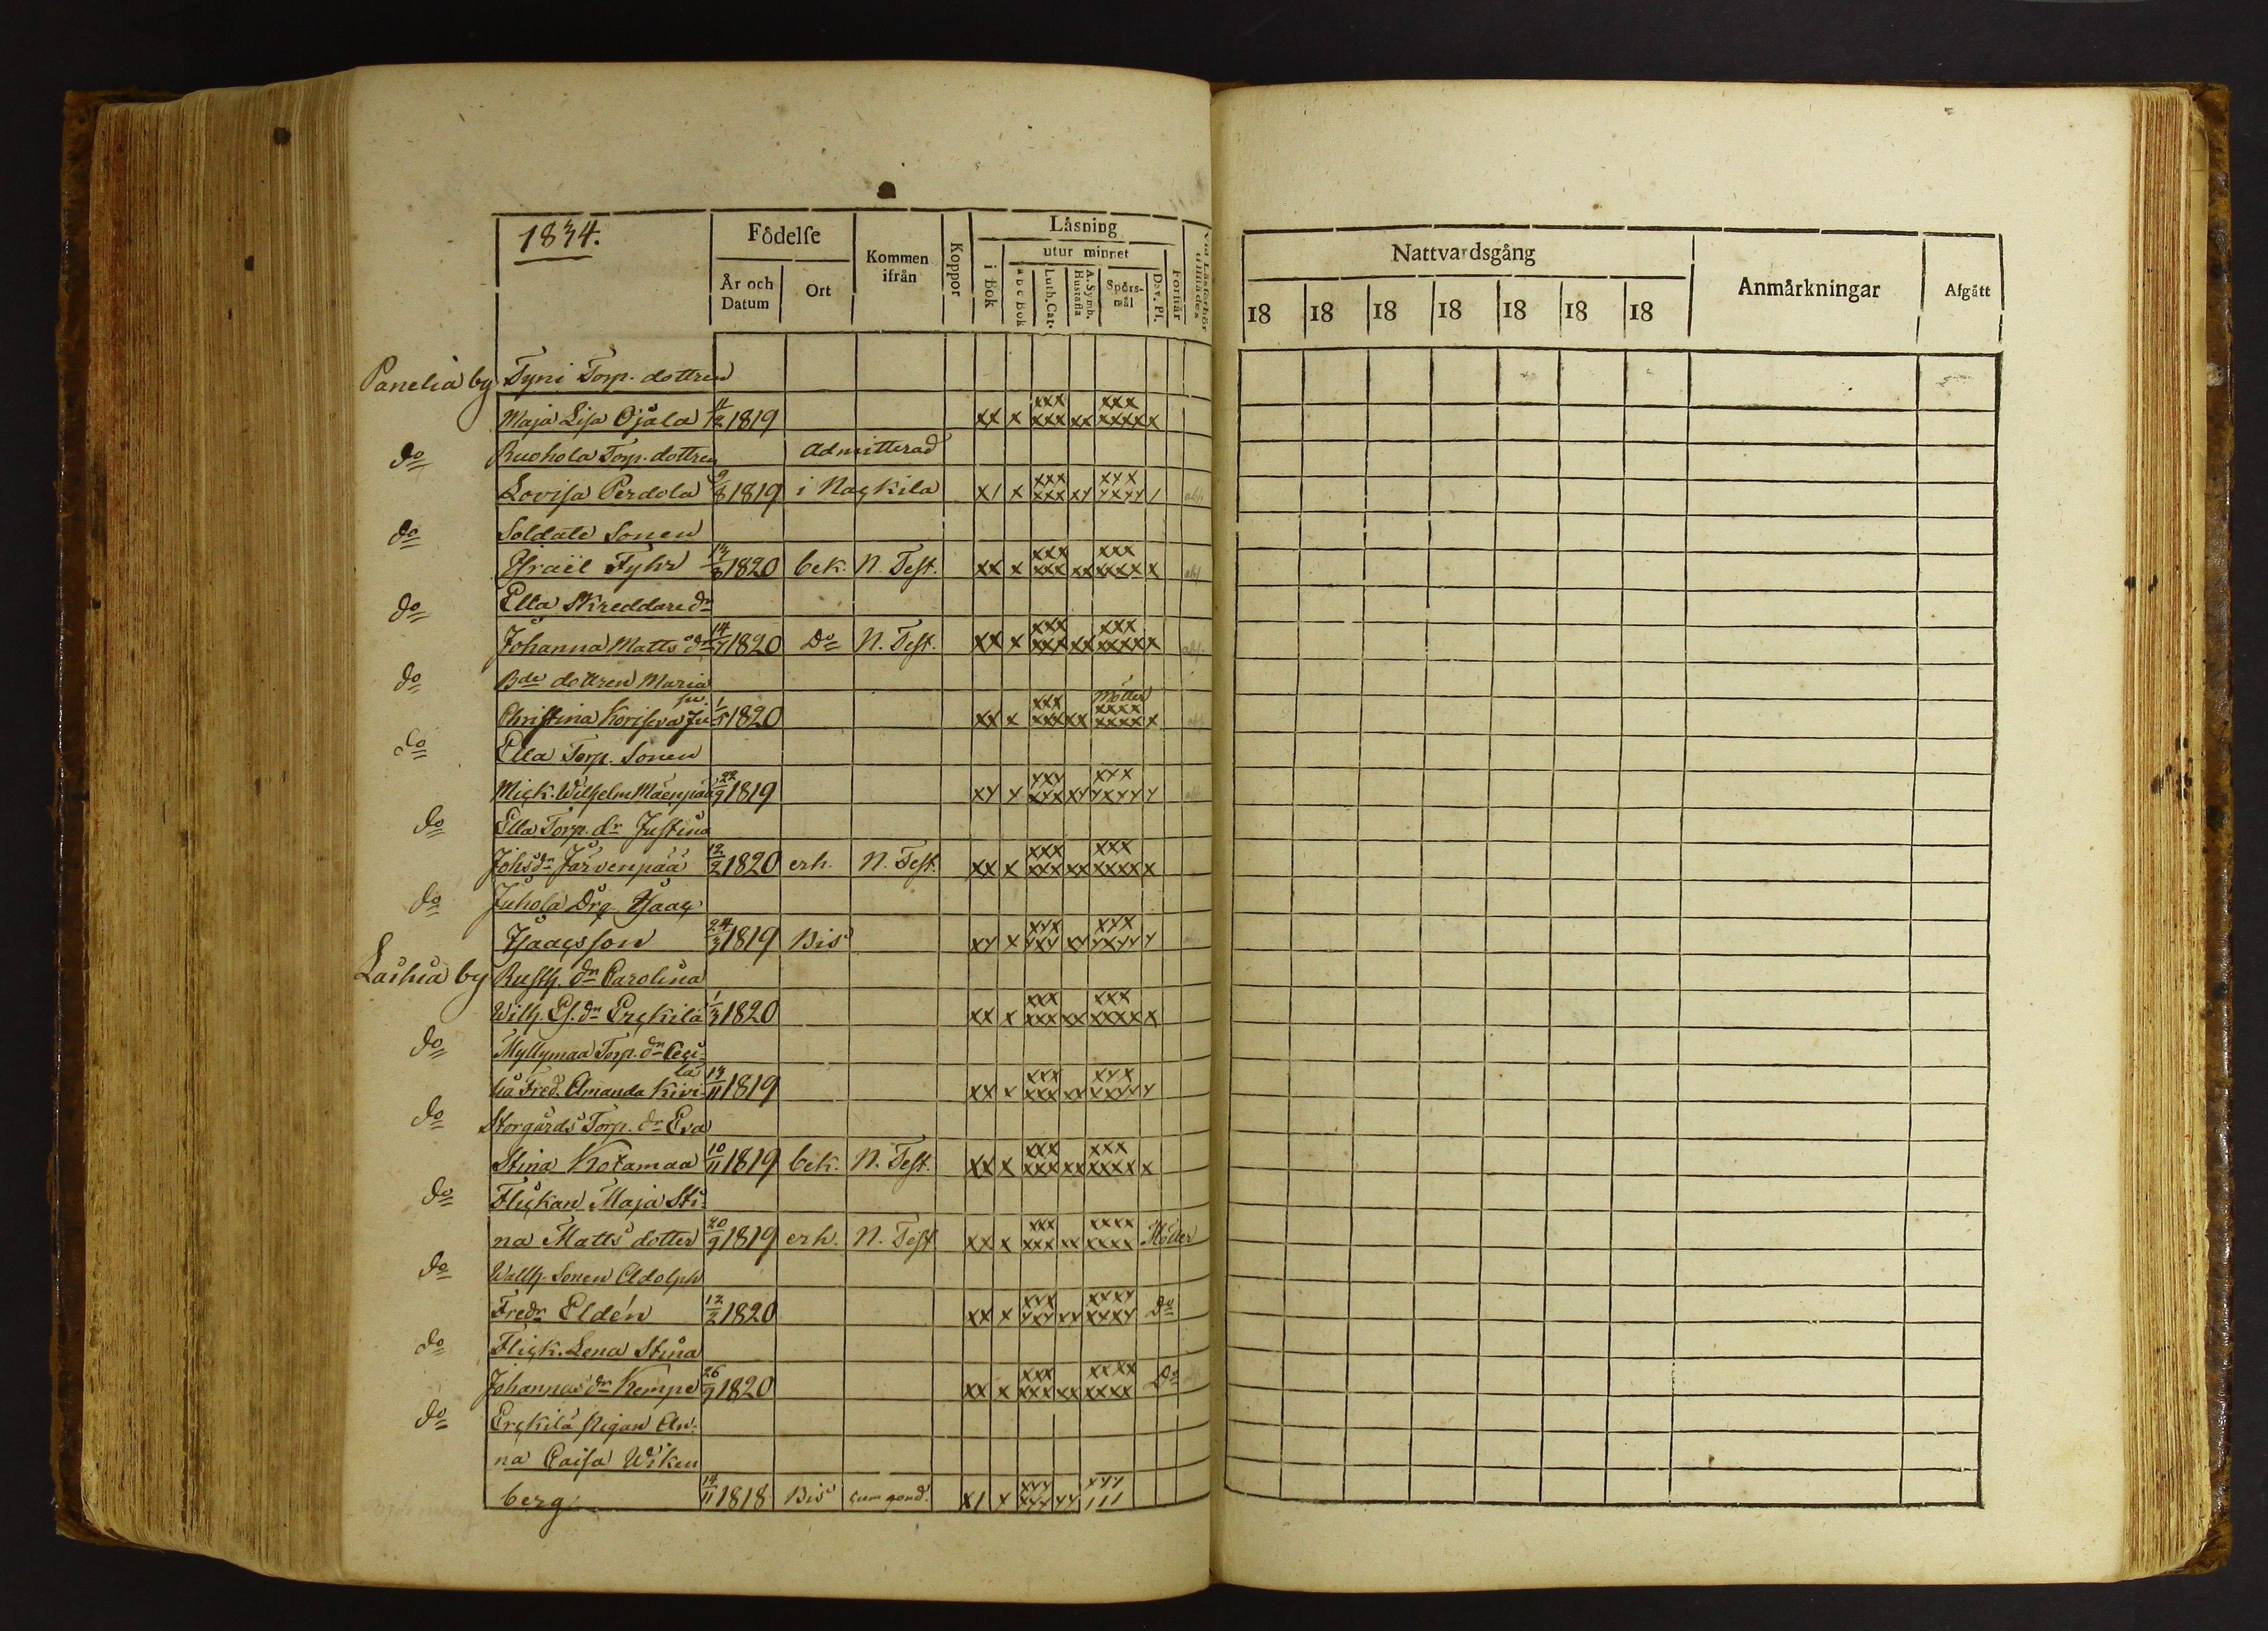 1834.
Födelse
År och Datum
Ort
Kommen ifrån
Koppor
Läsning
i Bok
utur minnet
a b c Bok
Luth. Cat.
A. Symb. Hustafla
Spörs-mål
Dav. Ps.
Förstår
Nattvardsgång
18 18 18 18 18 18 18
Anmärkningar
Afgått
Panelia by Tyni Torp. dottren
Maja Lisa Ojala 1819 xx x xxx xxx xx xxx xxxxx x
do Ruohola Torp. dottren admitterad
Lovisa Perdola 9/8 1819 i Nackila x/ x xxx xxx xx xxx xxxx /
do Soldate Sonen
Israël Fyhr 1820 bek. N. Test. xx x xxx xxx xx xxx xxxxx x
do Ella Skreddare dr
Johanna Matts dr 14 1820 Do N. Test. xx x xxx xxx xx xxx xxxxx x
do Bde dottren Maria
Christina Koriseva Ju 1820 xx x xxx xxx xx Möller xxxx xxxxx x
do Ella Torp. Sonen
Mick. Wilhelm Mäenpää 22/9 1819 xx x xxx xxx xx xxx xxxxx x
do Ella Torp. dr Justina
Johs dr Järvenpää 12/2 1820 erh. N. Test. xx x xxx xxx xx xxx xxxxx x
do Juhola Drg. Isaac
Isaacsson 24/3 1819 Bis xx x xxx xxx xx xxx xxxxx x
Laihia by Rusth. dr Carolina
Wilh. Es. dr Erckilä 1/3 1820 xx x xxx xxx xx xxx xxxxx x
do Myllymaa Torp. dr Ceci-
lia Fred. Amanda Kivi- la 1819 xx x xxx xxx xx xxx xxxxx x
do Storgårds Torp. dr Eva
Stina Kotamaa 10/11 1819 bek. N. Test. xx x xxx xxx xx xxx xxxxx x
do Flickan Maja Sti-
na Matts dotter 20/9 1819 erh. N. Test xx x xxx xxx xx xxxx xxxx Möller
do Wallh. Sonen Adolph
Fredr Eldén 12/2 1820 xx x xxx xxx xx xxxx xxxx Do
do Flick. Lena Stina
Johannes dr Kempe 26/9 1820 xx x xxx xxx xx xxxx xxxx Do
do Erckilä Pigan An-
na Caisa Wiken
berg 14/11 1818 Bis x/ x xxx xxx xx xxx ///